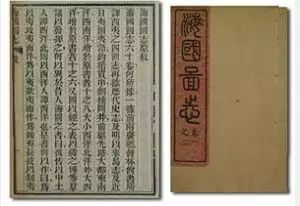 海國圖志原敘
海國圖志六十卷何所據一據前兩廣總督林尚書所
譯西夷之四洲志再據歷代史志及明以來島志及近
日夷圖夷語鉤稽貫串創榛闢莽前驅先路大都東南
洋西南洋增於原書者十之八大小西洋北洋外大西
洋增於原書者十之六又圖以經之表以緯之博參羣
議以發揮之何以異於昔人海圖之書曰彼皆以中土
人譚西洋此則以西洋人譚西洋也是書何以作曰爲
以夷攻夷而作爲以夷款夷而作爲師夷長技以制夷
海國圖志
海國圖志